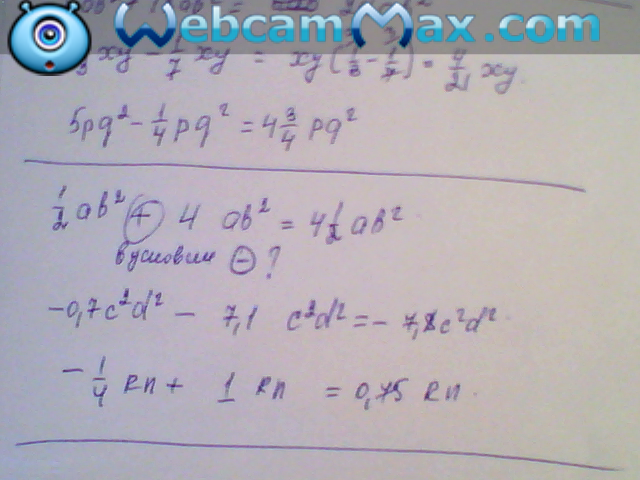 WebcamMax.com
1/3 xy - 1/7 xy = xy(1/3 - 1/7) = 4/21 xy
5pq² - 1/4 pq² = 4 3/4 pq²
1/2 ab² + 4 ab² = 4 1/2 ab²
в условии - ?
-0,7c²d² - 7,1 c²d² = - 7,8c²d²
- 1/4 kn + 1 kn = 0,75 kn.